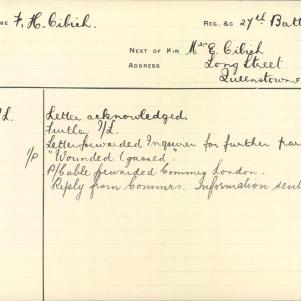 ME F. H. Cibich. REG. &c 27th Batt
NEXT OF KIN Mrs E. Cibich
ADDRESS Long Street
Queenstown
/L. Letter acknowledged.
Further I/L.
Letter forwarded Inquirer for further par
I/P "Wounded (gassed)."
P/Cable forwarded Commrs London.
Reply from Commrs. Information sent